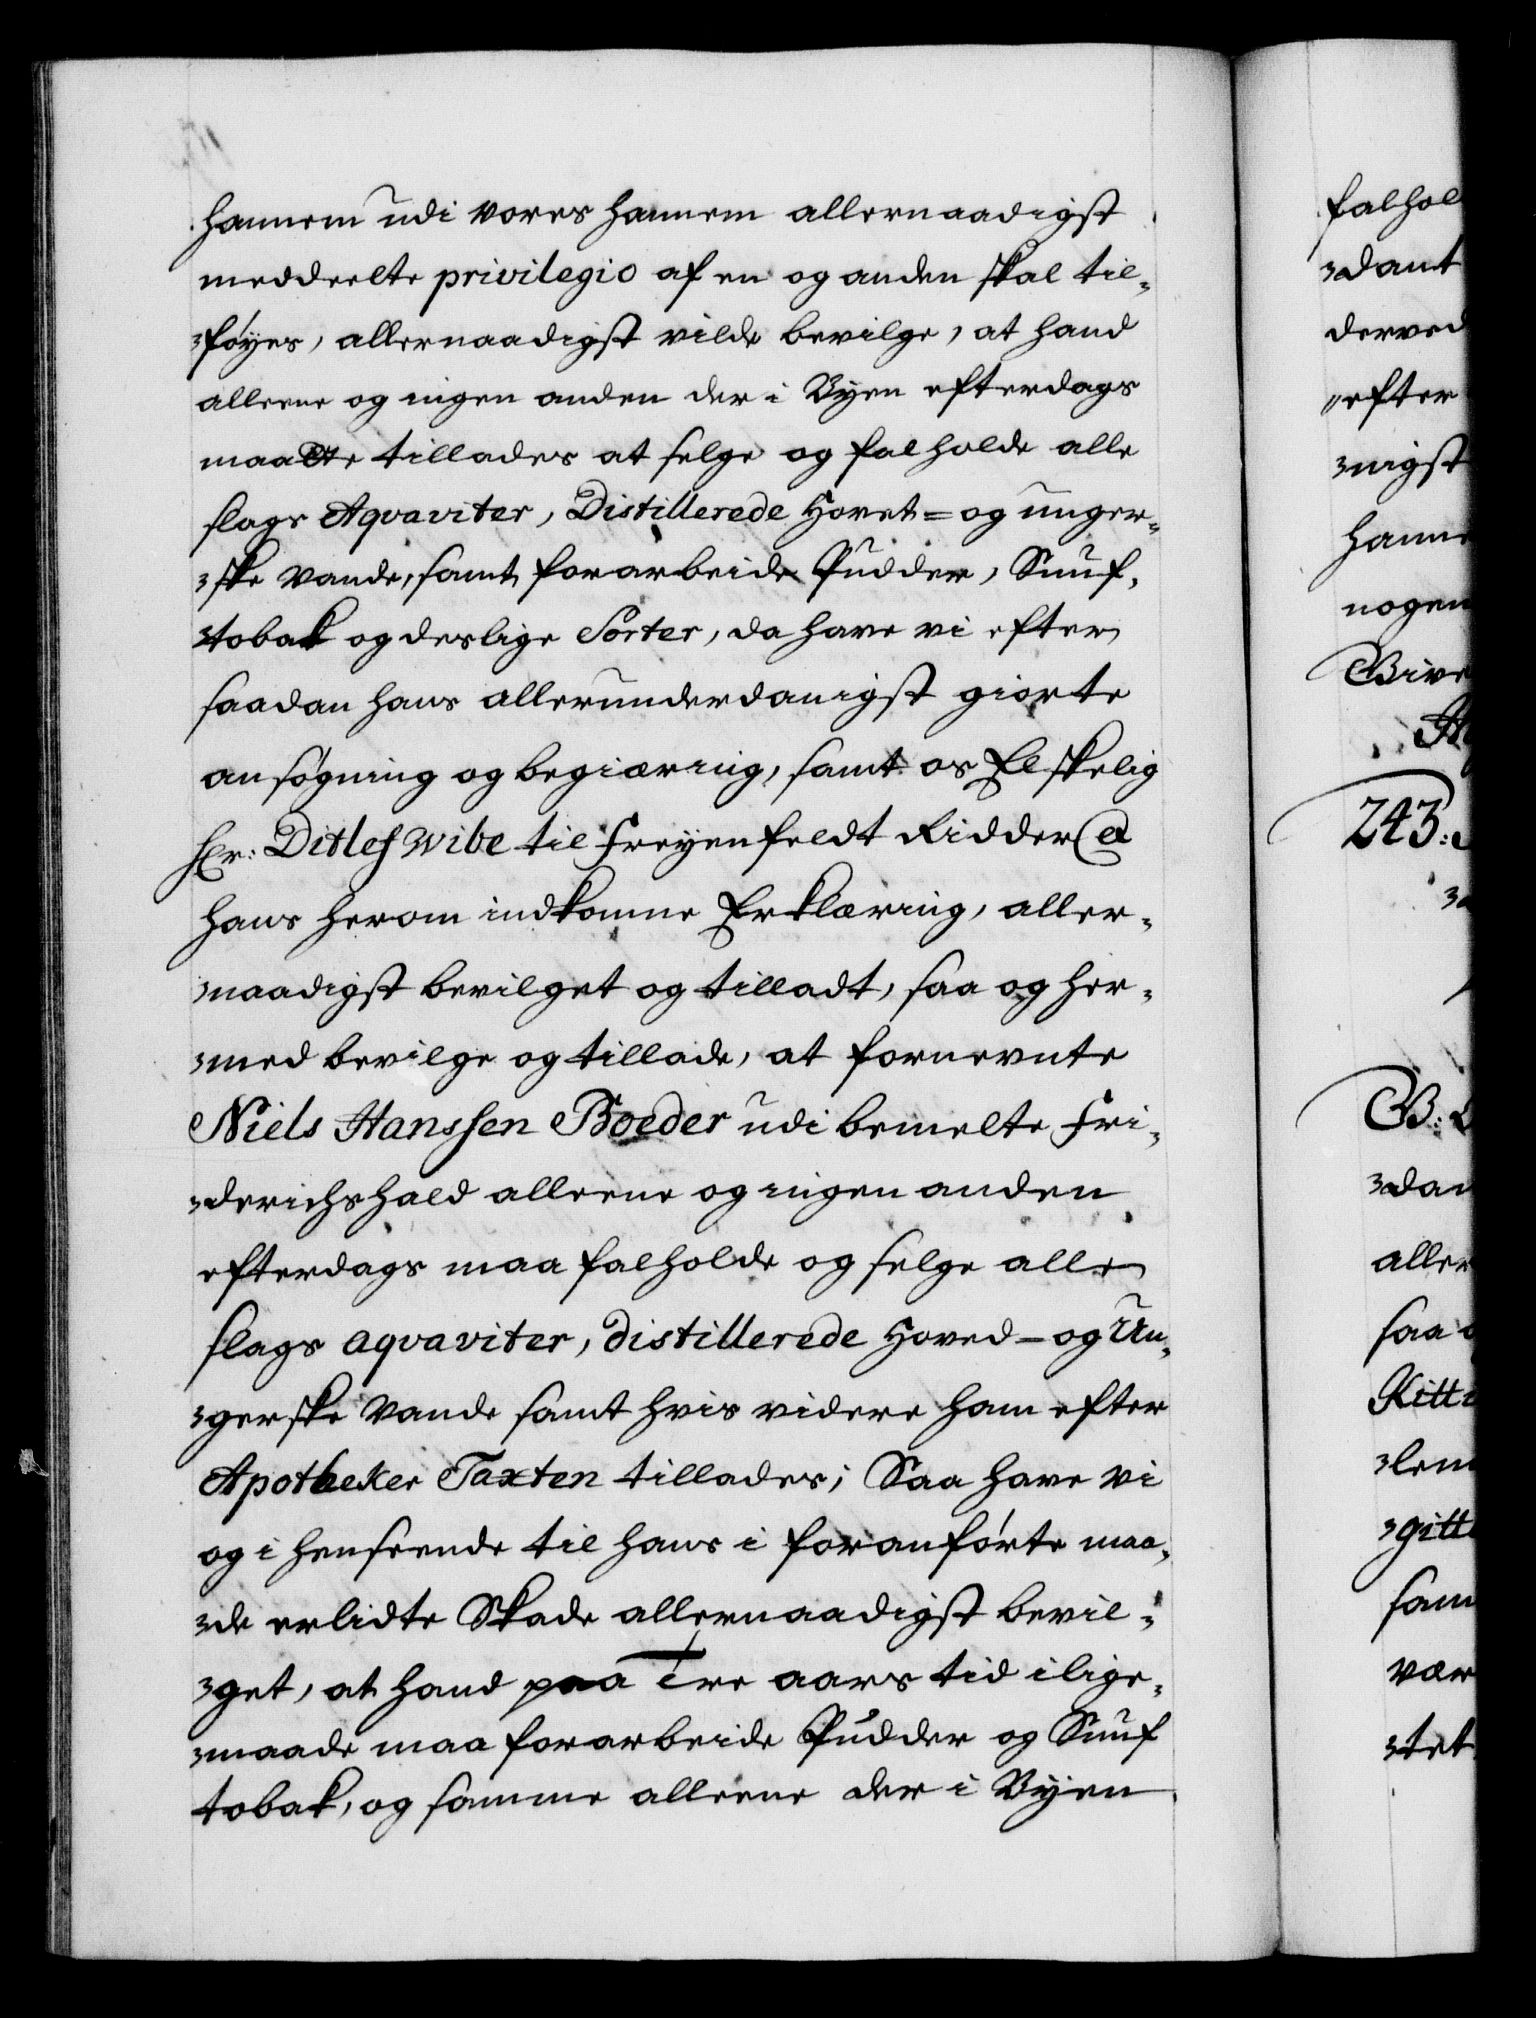 hannem udi vores hannem allernaadigst
meddeelte privilegio af en og anden skal til-
føyes, allernaadigst vilde bevilge, at hand
alleene og ingen anden der i Byen efterdags
maatte tillades at selge og falholde alle
slags Aqvaviter, Distillerede Hovet= og unger-
ske Vande, samt forarbeide Pudder, Snuf-
tobak og deslige Sorter, da have vi efter
saadan hans allerunderdanigst giorte
ansøgning og begiæring, samt os Elskelig
Hr: Ditlef Wibe til Freyenfeldt Ridder &
hans herom indkomne Erklæring, aller-
naadigst bevilget og tilladt, saa og her-
med bevilge og tillade, at fornevnte
Niels Hanssen Boeder udi bemelte Fri-
derichshald alleene og ingen anden
efterdags maa falholde og selge alle
slags aqvaviter, distillerede Hoved= og Un-
gerske Vande samt hvis videre ham efter
Apotheker Taxten tillades; Saa have vi
og i henseende til hans i foranførte maa-
de erlidte Skade allernaadigst bevil-
get, at hand paa Tre aars tid ilige-
maade maa forarbeide Pudder og Snuf
tobak, og samme alleene der i Byen
falhol
dant
derved
efter
nigst
hanne
nogen
Give
243:
G:
dan
aller
saa
Kitt
lem
gitt
sam
vær
tet